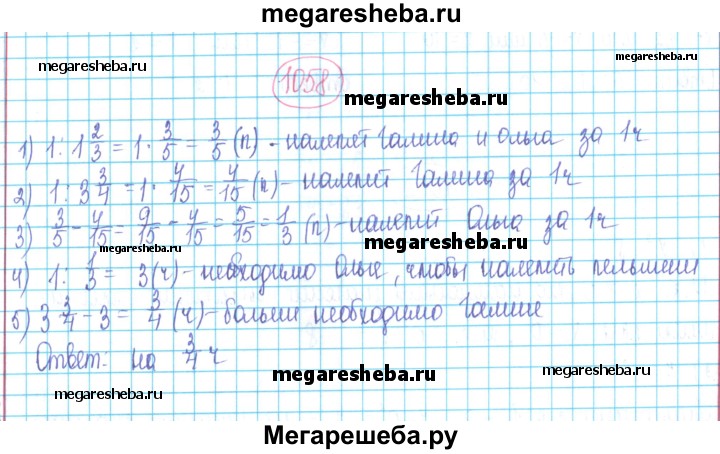 megaresheba.ru
megaresheba.ru
1058
megaresheba.ru
megaresheba.ru
1) 1 : 1 2/3 = 1 · 3/5 = 3/5 (п) - налепят Галина и Ольга за 1ч
2) 1 : 3 3/4 = 1 · 4/15 = 4/15 (п) - налепит Галина за 1ч
3) 3/5 - 4/15 = 9/15 - 4/15 = 5/15 = 1/3 (п) - налепит Ольга за 1ч
megaresheba.ru
megaresheba.ru
4) 1 : 1/3 = 3 (ч) - необходимо Ольге, чтобы налепить пельмени
5) 3 3/4 - 3 = 3/4 (ч) - больше необходимо Галине
Ответ: на 3/4 ч
megaresheba.ru
megaresheba.ru
megaresheba.ru
Мегарешеба.ру